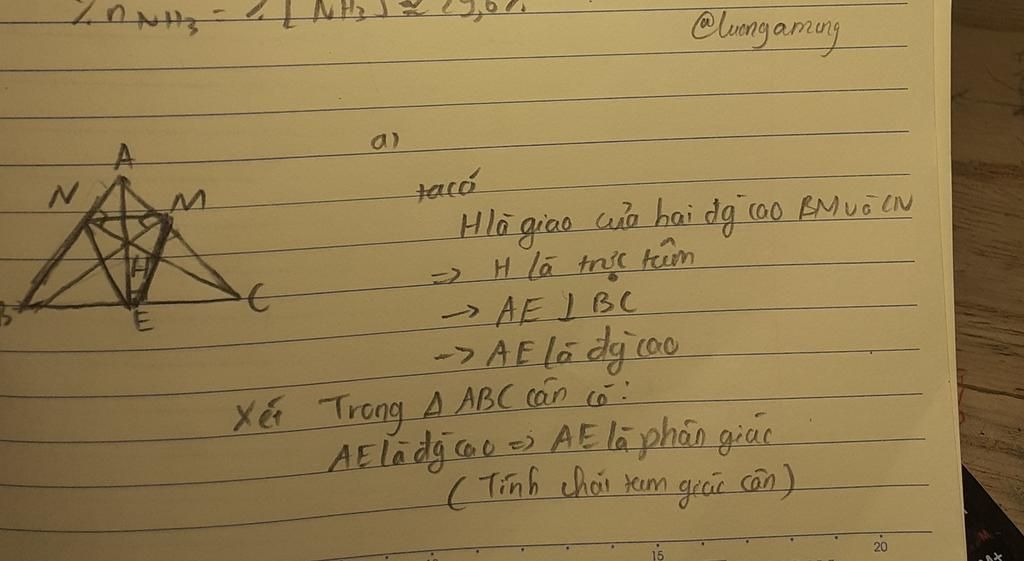 % n NH3 = % [NH3] ≈ 19,6%
@luongaming
a)
A
N M
H
B E C
ta có
H là giao của hai đg cao BM và CN
=> H là trực tâm
-> AE ⊥ BC
-> AE là đg cao
Xét Trong Δ ABC cân có:
AE là đg cao => AE là phân giác
(Tính chất tam giác cân)
15
20